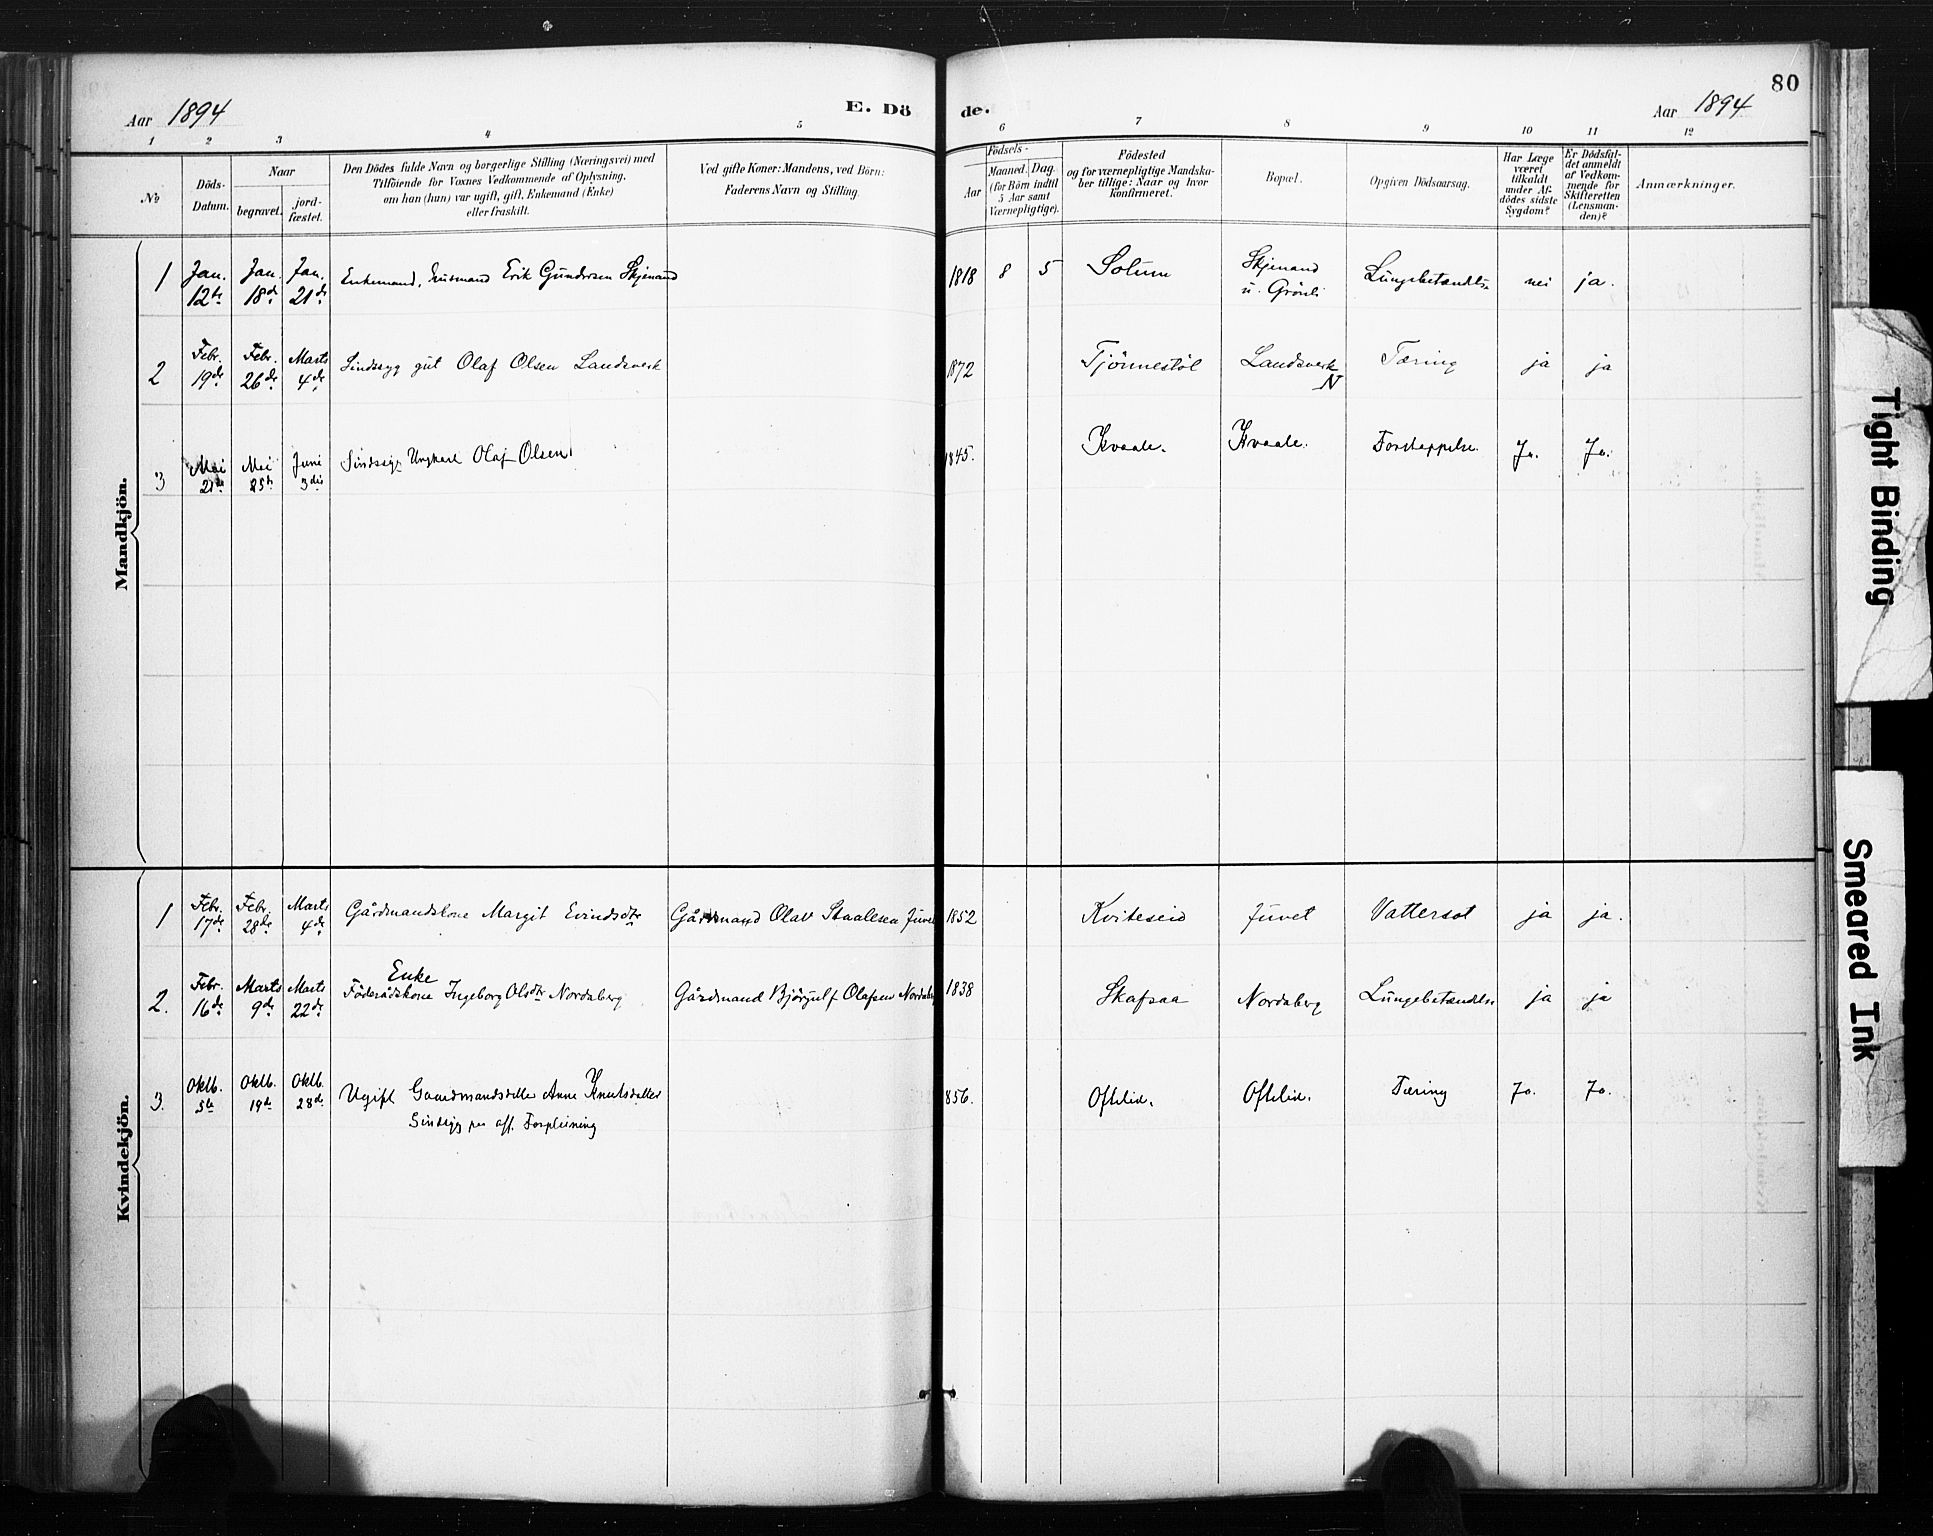 80
Aar 1894
E. Dö de.
Aar 1894
1 2 3 4 5 6 7 8 9 10 11 12
No
Döds-Datum.
Naar
begravet.
jord-fæstet.
Den Dödes fulde Navn og borgerlige Stilling (Næringsvei) med
Tilföiende for Voxnes Vedkommende af Oplysning,
om han (hun) var ugift, gift, Enkemand (Enke)
eller fraskilt.
Ved gifte Koner: Mandens, ved Börn:
Faderens Navn og Stilling.
Födsels-
Aar
Maaned. Dag.
(for Börn indtil
5 Aar samt
Værnepligtige).
Födested
og for værnepligtige Mandska-
ber tillige: Naar og hvor
konfirmeret.
Bopæl.
Opgiven Dödsaarsag.
Har Læge
været
tilkaldt
under Af-
dödes sidste
Sygdom?
Er Dödsfal-
det anmeldt
af Vedkom-
mende for
Skifteretten
(Lensman-
den)?
Anmærkninger.
Mandkjön.
1 Jan. 12te Jan. 18de Jan. 21de Enkemand, Husmand Erik Gundersen Skjenand 1818 8 5 Solum Skjenand u. Grönli Lungebetændelse nei ja.
2 Febr. 19de Febr. 26de Marts 4de Sindssyg gut Olaf Olsen Landsverk 1872 Tjönnestöl Landsverk N Tæring ja ja
3 Mai 21de Mai 25de Juni 3die Sindssyg Ungkarl Olaf Olsen 1845. Kvaale. Kvaale. Forstoppelse. Ja. Ja.
Kvindekjön.
1 Febr. 17de Febr. 28de Marts 4de Gårdmandskone Margit Evindsdtr Gårdmand Olav Staalesen Juvet 1852 Kviteseid Juvet Vattersot ja ja.
Enke
2. Febr. 16de Marts 9de Marts 22de Föderådskone Ingeborg Olsdtr Nordaberg Gårdmand Björgulf Olafsen Nordaberg 1838 Skafsaa Nordaberg Lungebetændelse ja ja
3. Oktb. 5te Oktb. 19de Oktb. 28de Ugift Gaardmandsdatter Anne Knutsdatter 856. Oftelid. Oftelid. Tæring Ja. Ja.
Sindsyg paa off. Forpleining
Tight Binding
Smeared Ink